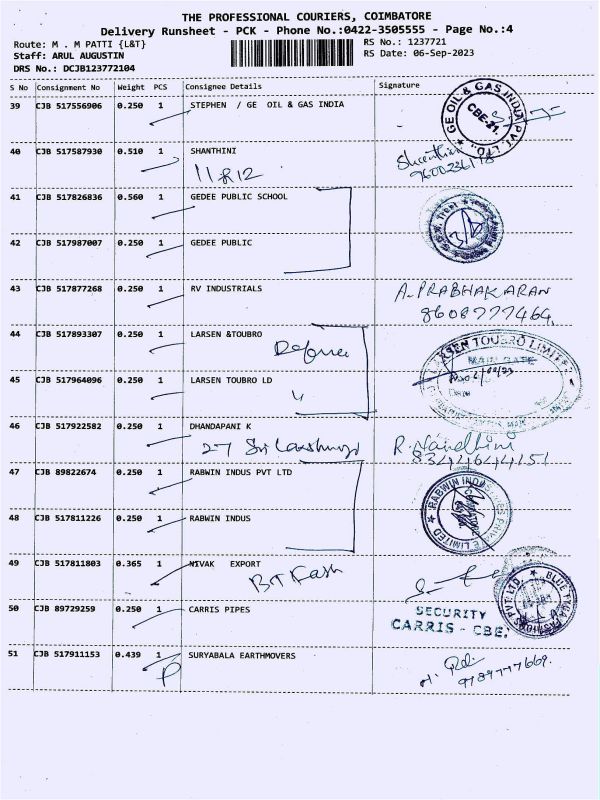 THE PROFESSIONAL COURIERS, COIMBATORE
Delivery Runsheet - PCK - Phone No.:0422-3505555 - Page No.:4
Route: M . M PATTI {L&T}
RS No.: 1237721
Staff: ARUL AUGUSTIN
RS Date: 06-Sep-2023
DRS No.: DCJB123772104
S No Consignment No Weight PCS Consignee Details Signature
39 CJB 517556906 0.250 1 STEPHEN / GE OIL & GAS INDIA
GE OIL & GAS INDIA PVT. LTD. CBE-21.
40 CJB 517587930 0.510 1 SHANTHINI
11 & 12
41 CJB 517826836 0.560 1 GEDEE PUBLIC SCHOOL
42 CJB 517987007 0.250 1 GEDEE PUBLIC
43 CJB 517877268 0.250 1 RV INDUSTRIALS A. PRABHAKARAN
8608777464.
44 CJB 517893307 0.250 1 LARSEN &TOUBRO
LARSEN TOUBRO LIMITED
MAIN GATE
45 CJB 517964096 0.250 1 LARSEN TOUBRO LD
46 CJB 517922582 0.250 1 DHANDAPANI K
27 Sri R. Nandhini
47 CJB 89822674 0.250 1 RABWIN INDUS PVT LTD
RABWIN INDUSTRIES PRIVATE LIMITED
48 CJB 517811226 0.250 1 RABWIN INDUS
49 CJB 517811803 0.365 1 NIVAK EXPORT
50 CJB 89729259 0.250 1 CARRIS PIPES
SECURITY
CARRIS - CBE.
51 CJB 517911153 0.439 1 SURYABALA EARTHMOVERS
P
9789777669.